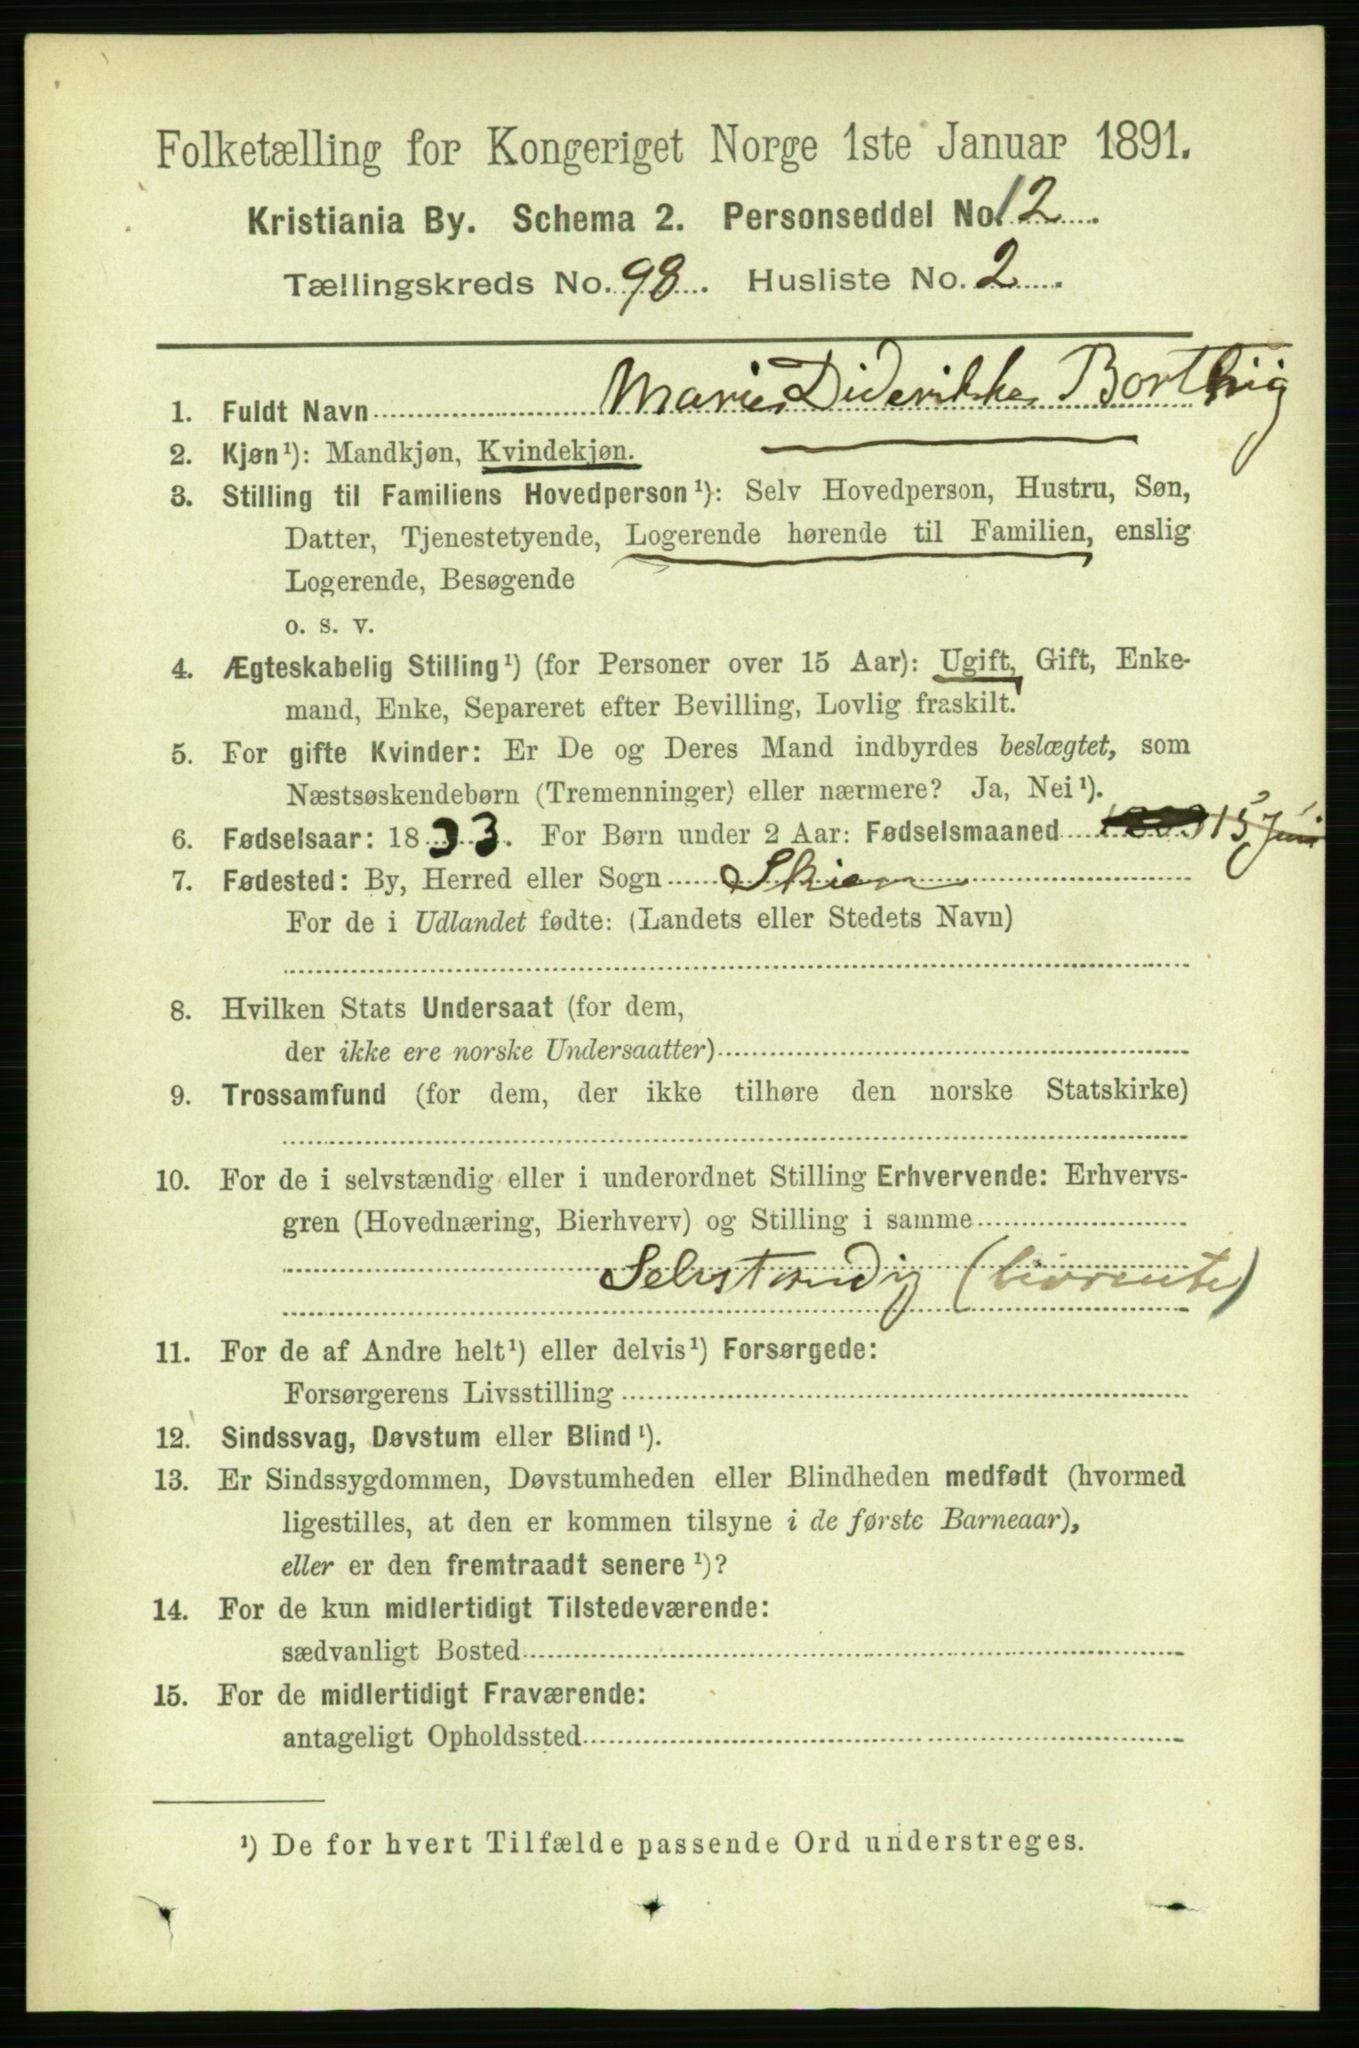 Folketælling for Kongeriget Norge 1ste Januar 1891.
Kristiania By. Schema 2. Personseddel No. 12.
Tællingskreds No. 98. Husliste No. 2.
1. Fuldt Navn Marie Diderikke Borthig
2. Kjøn¹): Mandkjøn, Kvindekjøn.
3. Stilling til Familiens Hovedperson¹): Selv Hovedperson, Hustru, Søn,
Datter, Tjenestetyende, Logerende hørende til Familien, enslig
Logerende, Besøgende
o. s. v.
4. Ægteskabelig Stilling¹) (for Personer over 15 Aar): Ugift, Gift, Enke-
mand, Enke, Separeret efter Bevilling, Lovlig fraskilt.
5. For gifte Kvinder: Er De og Deres Mand indbyrdes beslægtet, som
Næstsøskendebørn (Tremenninger) eller nærmere? Ja, Nei¹).
6. Fødselsaar: 1833. For Børn under 2 Aar: Fødselsmaaned 15 Juni
7. Fødested: By, Herred eller Sogn Skien
For de i Udlandet fødte: (Landets eller Stedets Navn)
8. Hvilken Stats Undersaat (for dem,
der ikke ere norske Undersaatter)
9. Trossamfund (for dem, der ikke tilhøre den norske Statskirke)
10. For de i selvstændig eller i underordnet Stilling Erhvervende: Erhvervs-
gren (Hovednæring, Bierhverv) og Stilling i samme
Selvstændig (Livrente)
11. For de af Andre helt¹) eller delvis¹) Forsørgede:
Forsørgerens Livsstilling
12. Sindssvag, Døvstum eller Blind¹).
13. Er Sindssygdommen, Døvstumheden eller Blindheden medfødt (hvormed
ligestilles, at den er kommen tilsyne i de første Barneaar),
eller er den fremtraadt senere¹)?
14. For de kun midlertidigt Tilstedeværende:
sædvanligt Bosted
15. For de midlertidigt Fraværende:
antageligt Opholdssted
¹) De for hvert Tilfælde passende Ord understreges.